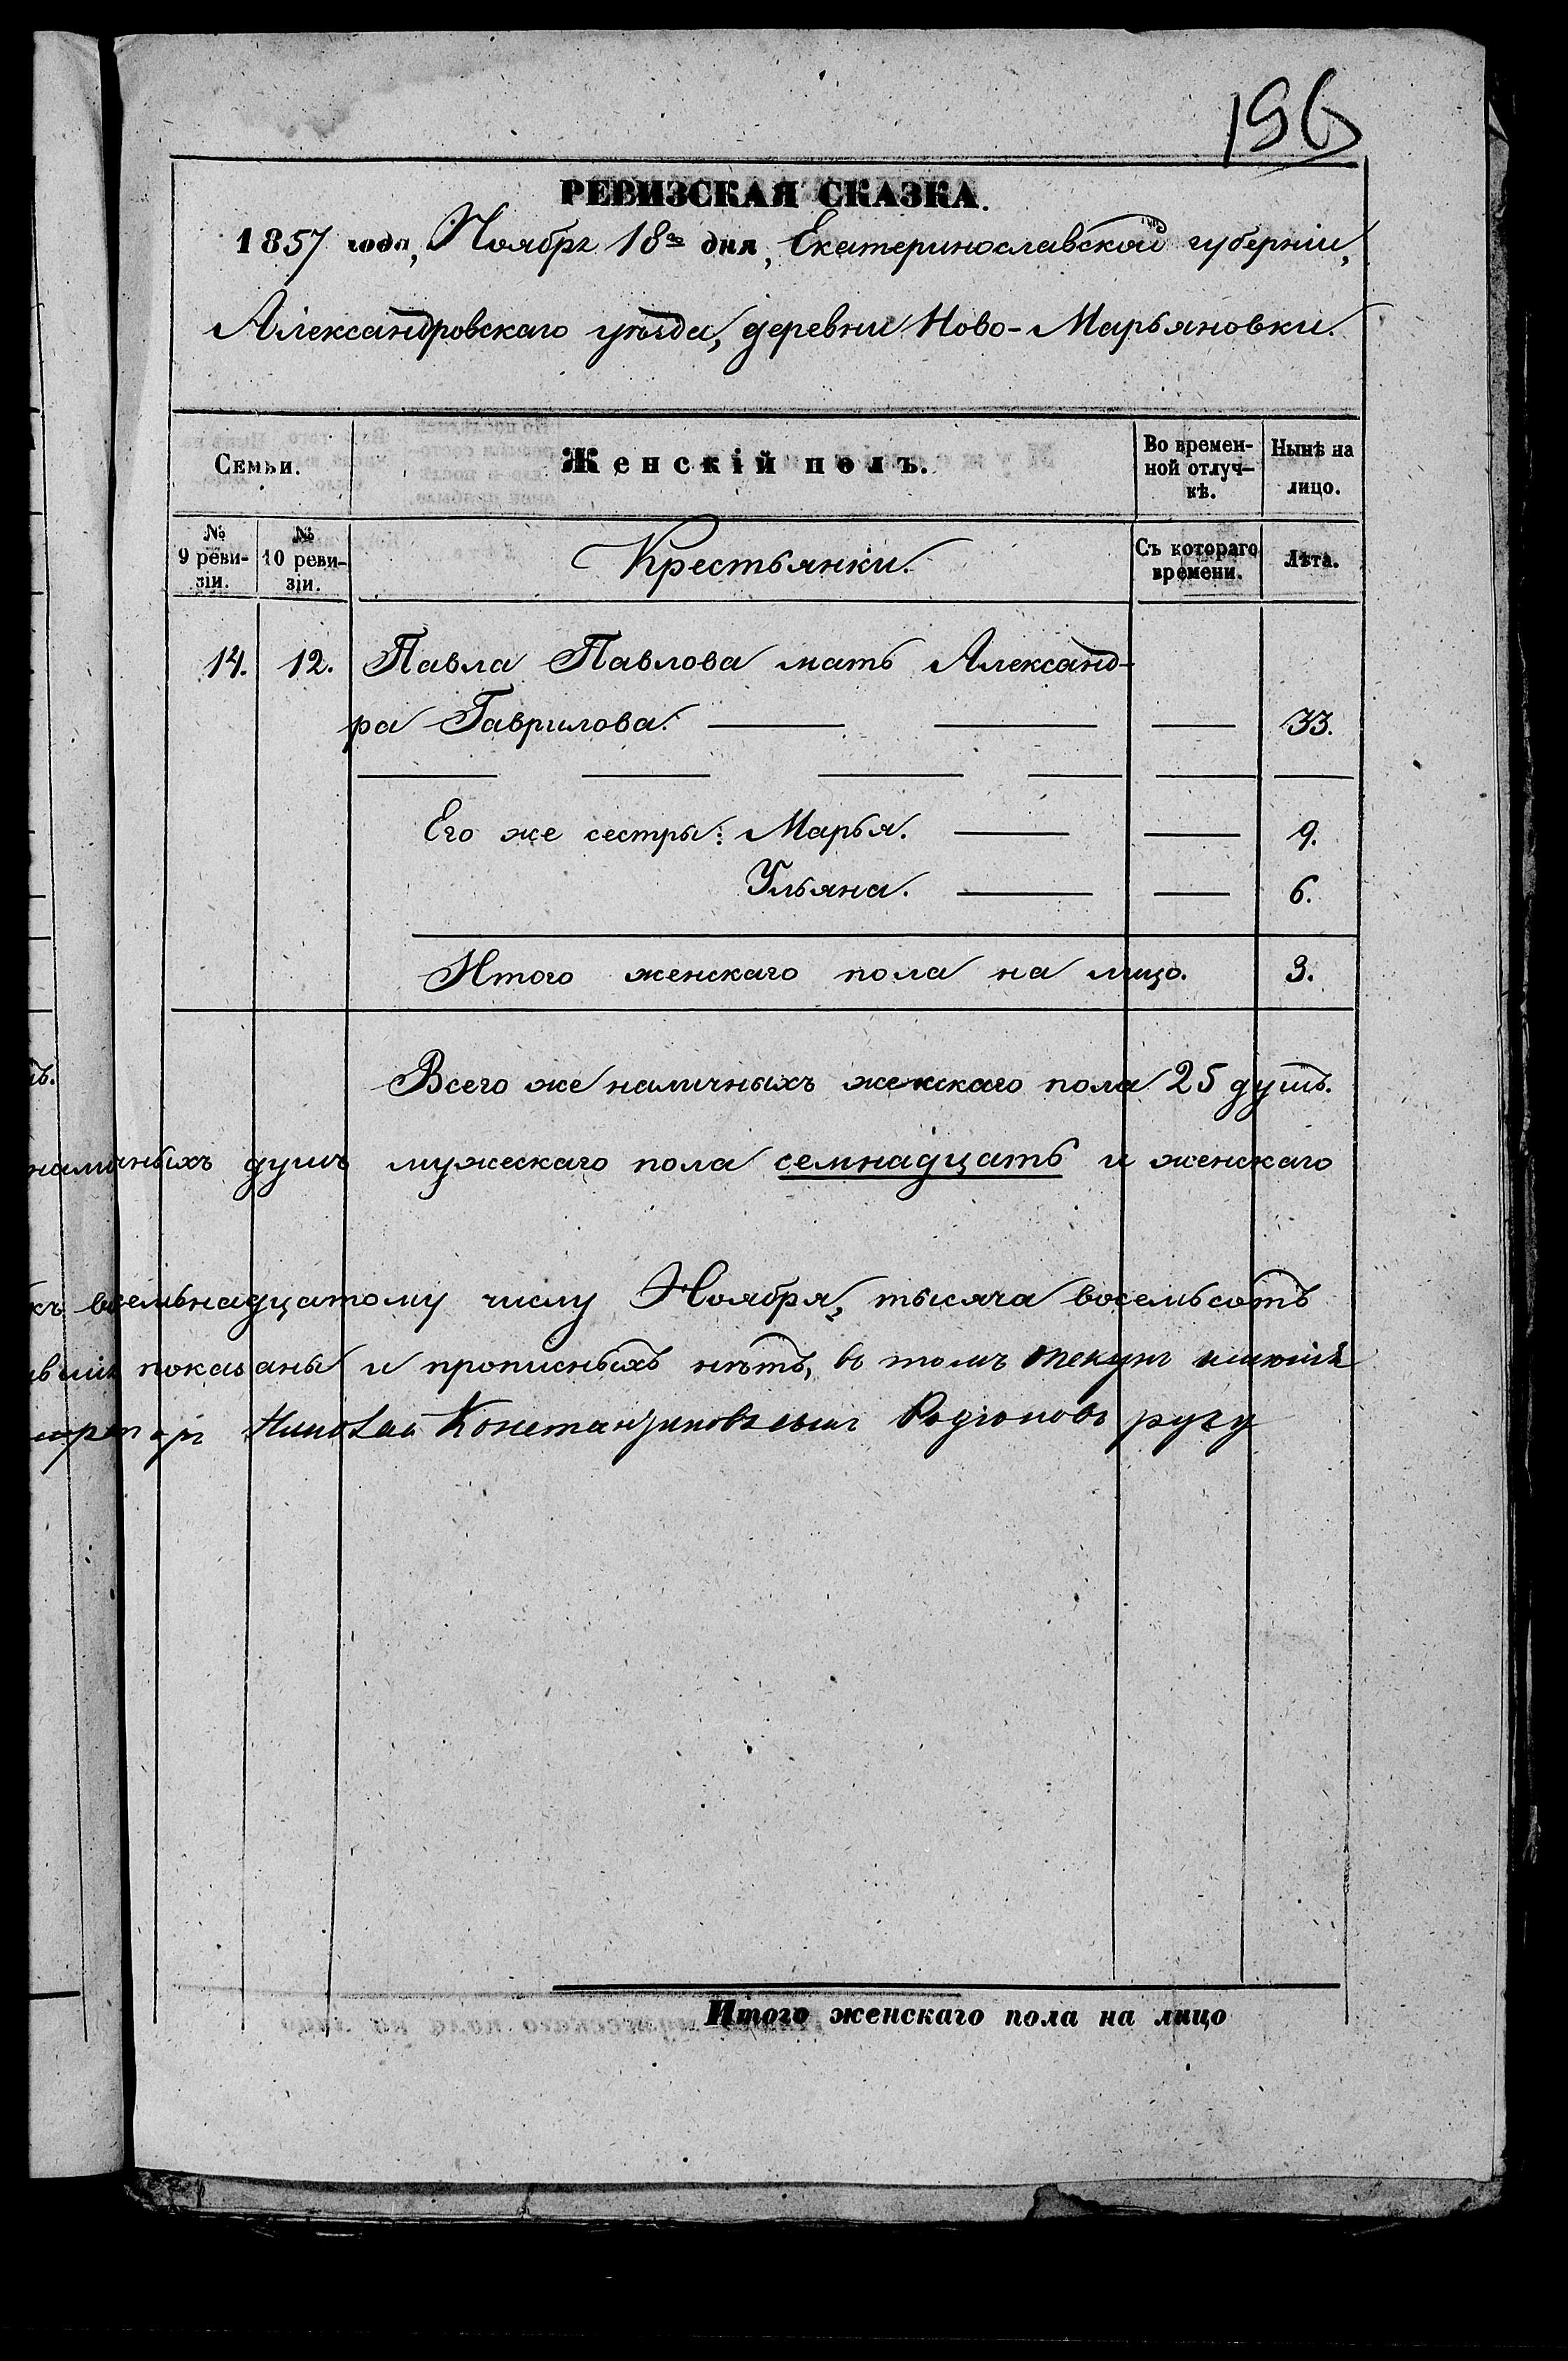 196
РЕВИЗСКАЯ СКАЗКА.
1857 года, Ноября 18го дня, Екатеринославской губерніи,
Александровскаго уѣзда, деревни Ново-Марьяновки.
Семьи. Женскій полъ. Во времен- Нынѣ на
ной отлуч- лицо.
кѣ.
№ № Крестьянки. Съ котораго Лѣта.
9 реви- 10 реви- времени.
зіи. зіи.
14. 12. Павла Павлова мать Александ-
ра Гаврилова. 33.
Его же сестры: Марья. 9.
Ульяна. 6.
Итого женскаго пола на лицо. 3.
Всего же наличныхъ женскаго пола 25 душъ.
наличныхъ душъ мужескаго пола семнадцать и женскаго
къ восемьнадцатому числу Ноября, тысяча восемьсотъ
показаны и прописныхъ нѣтъ, въ томъ
Николай Константиновъ сынъ Родіоновъ руку
Итого женскаго пола на лицо